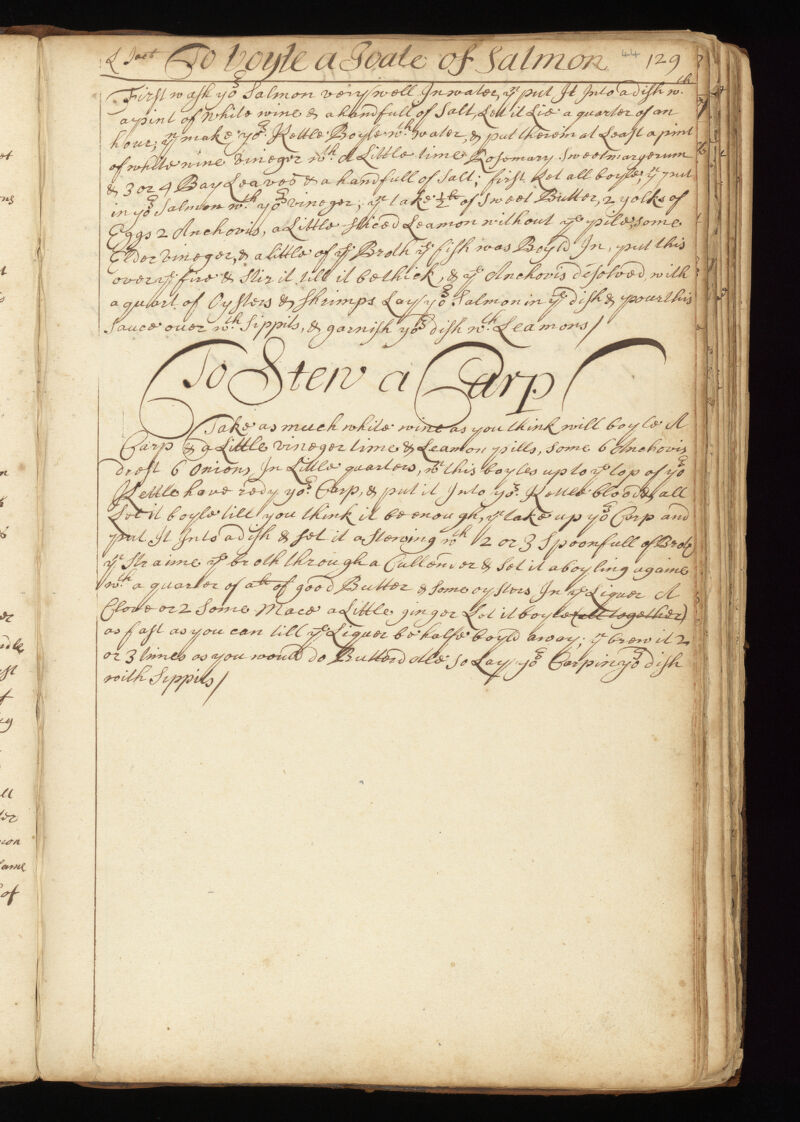 To boyle a Joale of Salmon 44 129
First wash yor Salmon very well In water, yn put It Into a dish wth
a pint of white wine & a handfull of Salt, Let it Lie a quarter of an
hour; yn make yor Kettle Boyle wth water, & put therein at Least a pint
of white wine vineger wth A Little time Rosemary Sweetmargerum
& 3 or 4 Bay Leaves & a handfull of Salt; first Let all boyle, yn put
in yor Salmon wth yor vineger; yn take of Sweet Butter, 2 yolks of
Eggs 2 Anchovis, a Little Sliced Leamon without ye pile, some
Elder vineger, & a little of ye Broth ye fish was Boyld In, put this
over ye fire & Stir it till it be thick, & ye Anchovis desolved, with
a quart of Oysters & Shrimps Lay yor Salmon in ye dish & pour this
Sauce over wth Sippits, & garnish yor dish wth Leamons /
To Stew a Carp
Take as much white wine as you think will boyle A
Carp & a Little vineger time & Leamon pills, some 6 Anchovis
drest 6 onions, In Little quarters, wn this boyles up to ye top of yor
Kettle have redy yor Carp, & put it Into yor Kettle blood & all
Let it boyle till you think it be enough, yn take up yor Carp and
put It Into a dish & set it a stewing wth 2 or 3 Spoonfull of Broth
yn Straine ye broth through a Cullender & Set it a boyling againe
wth a quarter of a lb of good Butter & some oysters In ye Liquer A
Clove or 2 Some Mace a Little ginger Let it boyle all together
as fast as you can till ye Liquer be halfe boyld away; yn brew it 2
or 3 times as you would do Butterd Ale so Lay yor Carp in yor dish
with Sippits /